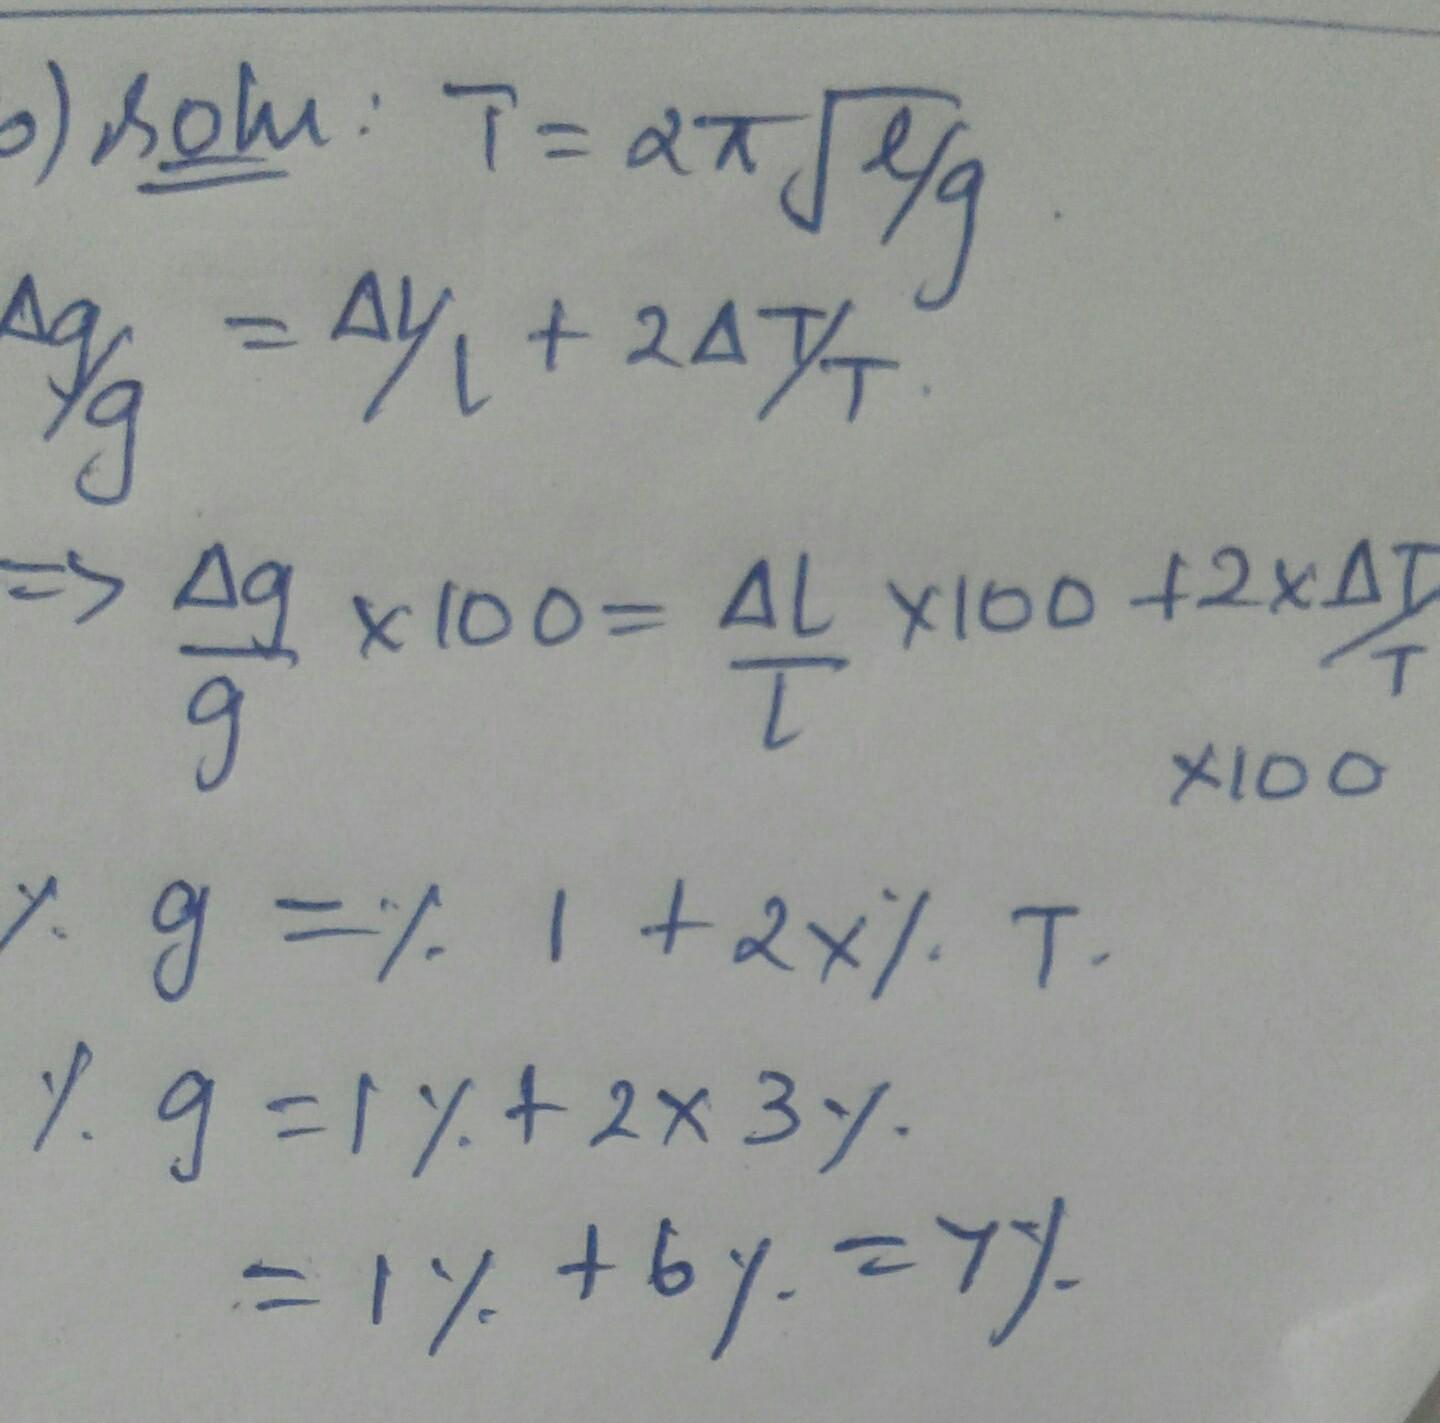 b) Soln: T = 2π√l/g.
Δg/g = Δl/l + 2ΔT/T.
=> Δg/g ×100 = ΔL/L ×100 + 2×ΔT/T
×100
% g = % l + 2×% T.
% g = 1% + 2×3%.
= 1% + 6% = 7%